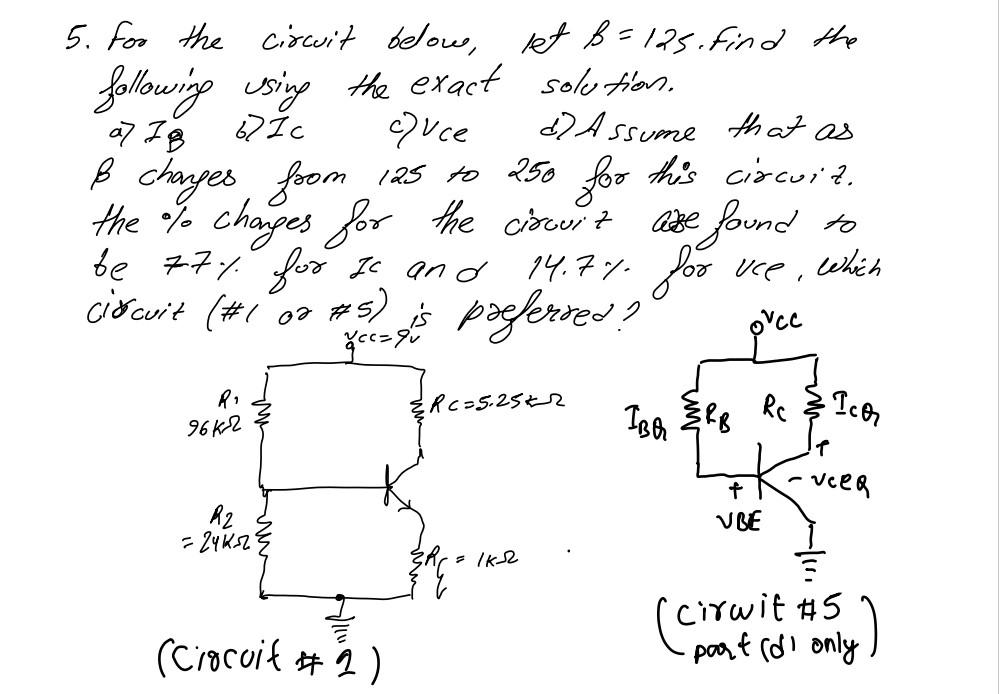 5. For the circuit below, let β = 125. Find the
following using the exact solution.
a) IB b) Ic c) Vce d) Assume that as
β changes from 125 to 250 for this circuit.
the % changes for the circuit are found to
be 77% for Ic and 14.7% for Vce, which
circuit (#1 or #5) is preferred?
Vcc=9v
R1
96KΩ
Rc=5.25kΩ
R2
= 24KΩ
= 1KΩ
(Circuit # 1)
VCC
IBQ
RB
Rc
ICQ
+
- VCEQ
+
VBE
(circuit #5
part (d) only)